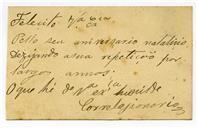 Felicito V.ª Ex.cia
Pello seu aniversario natalicio,
Dezejando a sua repetição por
largos annos.
O que hé de V.ª ex.ª
Correligionario